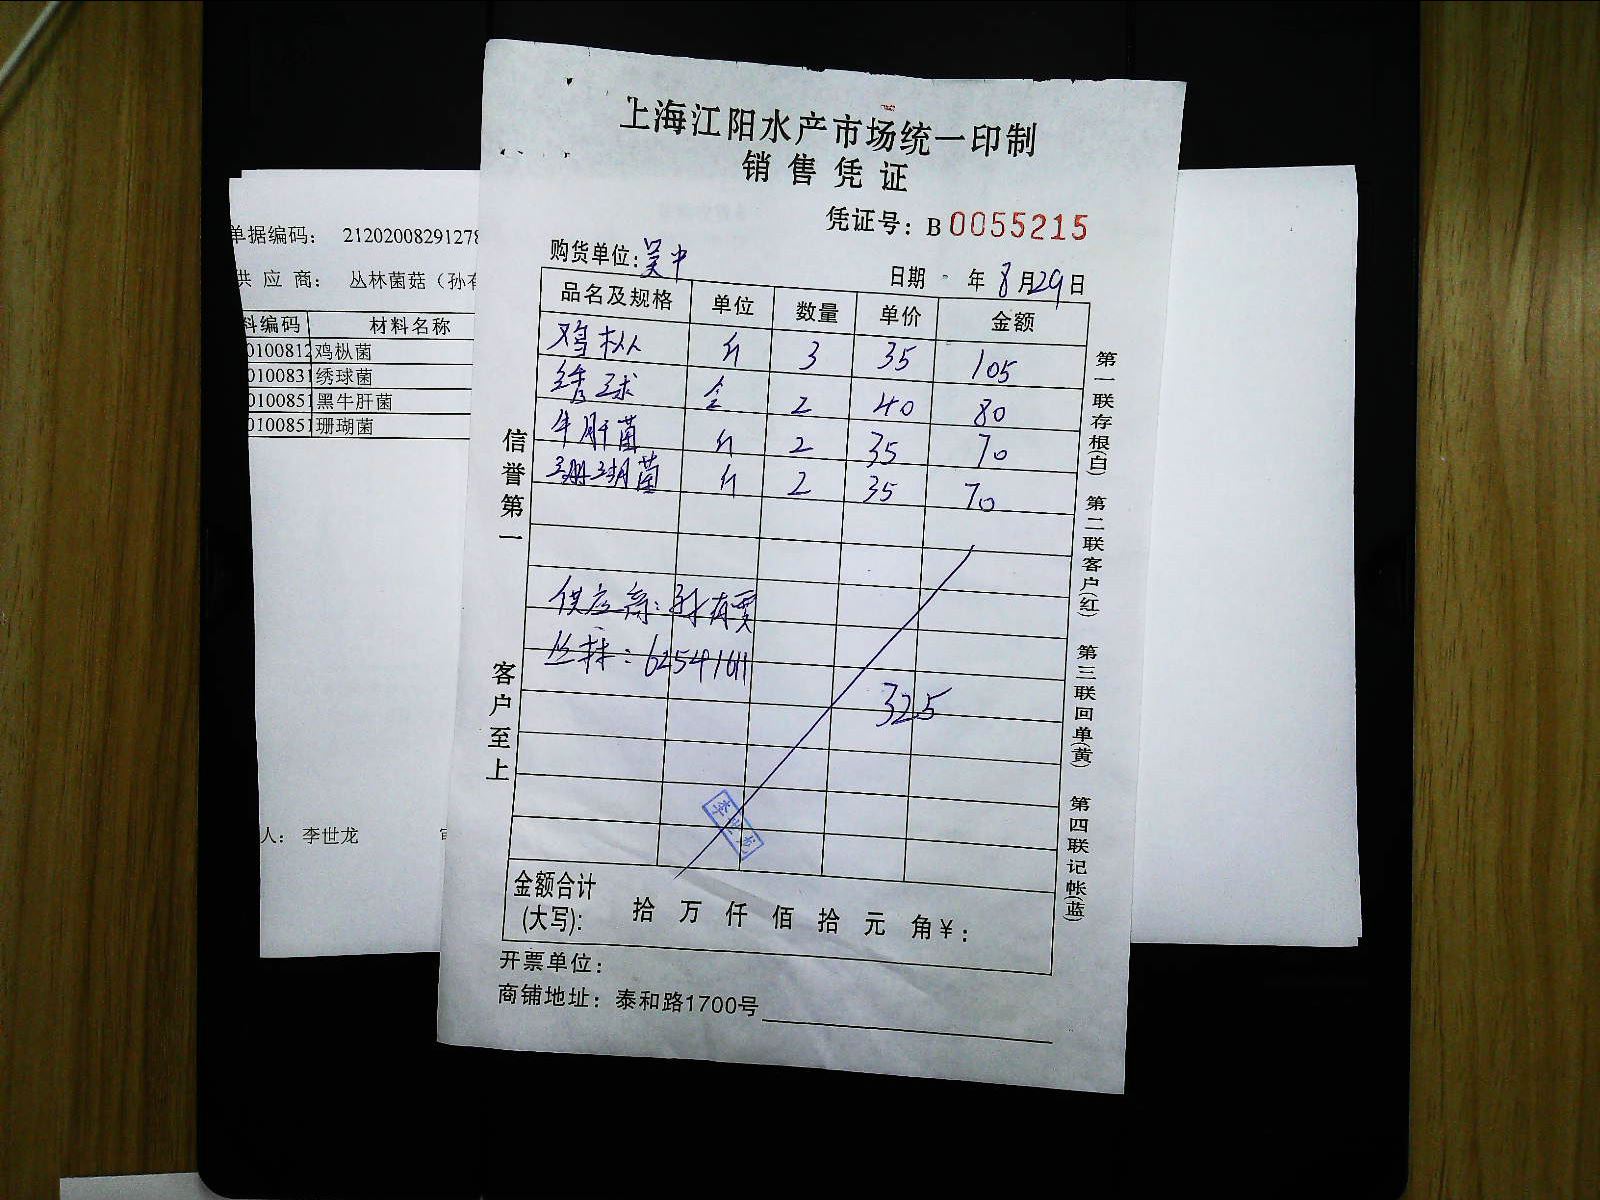 上海江阳水产市场统一印制
销售凭证
凭证号：B 0055215
购货单位：吴中
日期 年8月29日
品名及规格 单位 数量 单价 金额
鸡枞 斤 3 35 105
绣球 盒 2 40 80
牛肝菌 斤 2 35 70
珊瑚菌 斤 2 35 70
供应商：孙有贾
丛林：62541611
325
李世龙
金额合计
(大写): 拾 万 仟 佰 拾 元 角￥:
开票单位：
商铺地址：泰和路1700号
信誉第一
客户至上
第一联存根(白) 第二联客户(红) 第三联回单(黄) 第四联记帐(蓝)
单据编码： 21202008291278
供 应 商： 丛林菌菇（孙有
料编码 材料名称
0100812 鸡枞菌
0100831 绣球菌
0100851 黑牛肝菌
0100851 珊瑚菌
人： 李世龙